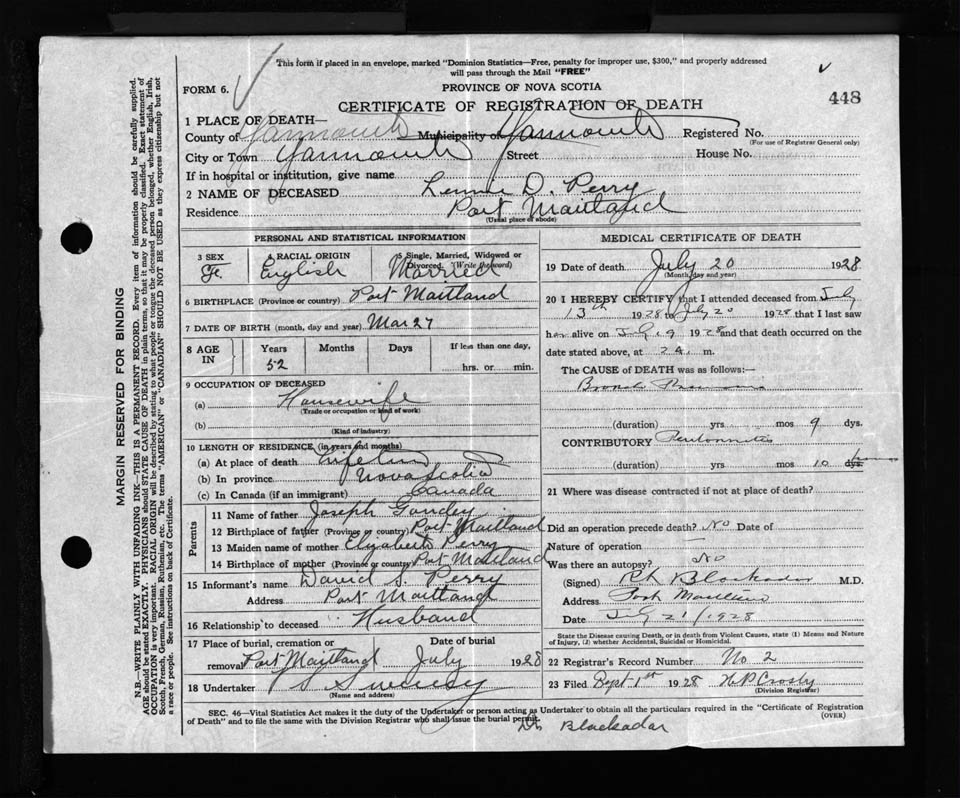 This form if placed in an envelope, marked "Dominion Statistics—Free, penalty for improper use, $300," and properly addressed
will pass through the Mail "FREE"
FORM 6.
PROVINCE OF NOVA SCOTIA
448
CERTIFICATE OF REGISTRATION OF DEATH
1 PLACE OF DEATH—
County of Yarmouth Municipality of Yarmouth Registered No.
(For use of Registrar General only)
City or Town Yarmouth Street House No.
If in hospital or institution, give name
2 NAME OF DECEASED Lennie D. Perry
Residence Port Maitland
(Usual place of abode)
PERSONAL AND STATISTICAL INFORMATION
3 SEX 4 RACIAL ORIGIN 5 Single, Married, Widowed or Divorced. (Write the word)
Fe. English Married
6 BIRTHPLACE (Province or country) Port Maitland
7 DATE OF BIRTH (month, day and year) Mar 27
8 AGE IN Years Months Days If less than one day,
52 hrs. or min.
9 OCCUPATION OF DECEASED
(a) Housewife
(Trade or occupation or kind of work)
(b)
(Kind of industry)
10 LENGTH OF RESIDENCE (in years and months)
(a) At place of death Lifetime
(b) In province Nova Scotia
(c) In Canada (if an immigrant) Canada
Parents
11 Name of father Joseph Goudey
12 Birthplace of father (Province or country) Port Maitland
13 Maiden name of mother Elizabeth Perry
14 Birthplace of mother (Province or country) Port Maitland
15 Informant's name David S. Perry
Address Port Maitland
16 Relationship to deceased Husband
17 Place of burial, cremation or Date of burial
removal Port Maitland July 1928
18 Undertaker Sweeny
(Name and address)
MEDICAL CERTIFICATE OF DEATH
19 Date of death July 20 1928
(Month, day and year)
20 I HEREBY CERTIFY that I attended deceased from July
13th 1928 to July 20 1928 that I last saw
her alive on July 19 1928 and that death occurred on
date stated above, at 2 a. m.
The CAUSE of DEATH was as follows:—
Broncho Pneumonia
(duration) yrs mos 9 dys.
CONTRIBUTORY Peritonitis
(duration) yrs mos 10 dys.
21 Where was disease contracted if not at place of death?
Did an operation precede death? No Date of
Nature of operation —
Was there an autopsy? No
(Signed) Blackadar M.D.
Address Port Maitland
Date July 21/1928
State the Disease causing Death, or in death from Violent Causes, state (1) Means and Nature
of Injury, (2) whether Accidental, Suicidal or Homicidal.
22 Registrar's Record Number No 2
23 Filed Sept 1st 1928 H P Crosby
(Division Registrar)
SEC. 46—Vital Statistics Act makes it the duty of the Undertaker or person acting as Undertaker to obtain all the particulars required in the "Certificate of Registration
of Death" and to file the same with the Division Registrar who shall issue the burial permit.
(OVER)
Dr Blackadar
MARGIN RESERVED FOR BINDING
N.B.—WRITE PLAINLY WITH UNFADING INK—THIS IS A PERMANENT RECORD. Every item of information should be carefully supplied.
AGE should be stated EXACTLY. PHYSICIANS should STATE CAUSE OF DEATH in plain terms, so that it may be properly classified. Exact statement of
OCCUPATION is very important. RACIAL ORIGIN will be described by stating to what people or tongue the deceased person belonged, whether English, Irish,
Scotch, French, German, Russian, Ruthenian, etc. The terms "AMERICAN" or "CANADIAN" SHOULD NOT BE USED as they express citizenship but not
a race or people. See instructions on back of Certificate.